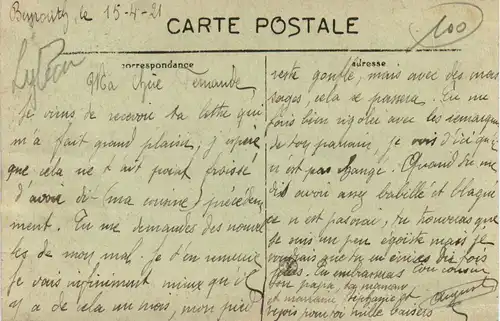 Beyrouth, le 15-4-21
CARTE POSTALE
100
Correspondance
adresse
Ma chère Fernande,
je viens de recevoir ta lettre qui
m'a fait grand plaisir, j'espère
que cela ne t'ait point froissé
d'avoir dit (ma cousine) précédem
ment. Tu me demandes des nouvel
les de mon mal. Je t'en remercie
je vais infiniment mieux qu'il
y a de cela un mois, mon pied
reste gonflé, mais avec des mas
sages, cela se passera. Tu me
fais bien rigoler avec les remarques
de ton parrain, je vois d'ici qu'il
n'est pas changé. Quand tu me
dis avoir assez babillé et blagué
ce n'est pas vrai, tu trouveras que
je suis un peu égoïste mais je
voudrais que tu en dix fois
plus. Tu embrasseras ton cousin
ton papa, ta maman
et marraine Stéphanie et
reçois pour toi mille baisers
Auguste